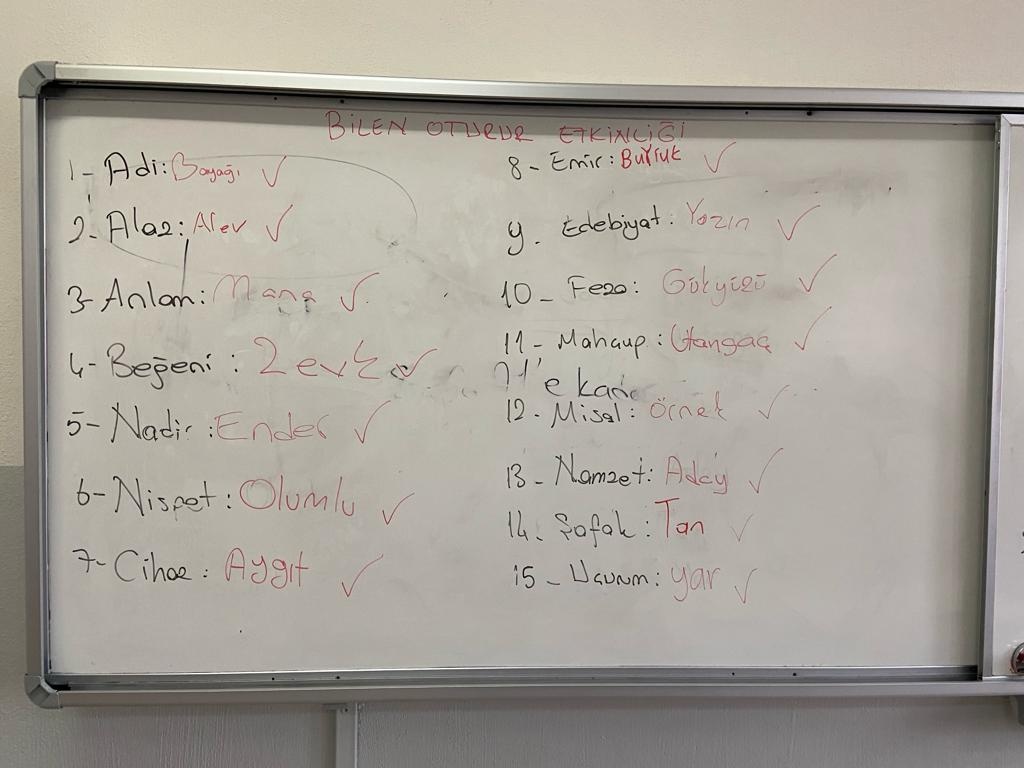 BİLEN OTURUR ETKİNLİĞİ
1- Adi: Bayağı ✓
2- Alaz: Alev ✓
3- Anlam: Mana ✓
4- Beğeni: Zevk ✓
5- Nadir: Ender ✓
6- Nispet: Olumlu ✓
7- Cihaz: Aygıt ✓
8- Emir: Buyruk ✓
9- Edebiyat: Yazın ✓
10- Feza: Gökyüzü ✓
11- Mahcup: Utangaç ✓
12- Misal: Örnek ✓
13- Namzet: Aday ✓
14- Şafak: Tan ✓
15- Uçurum: yar ✓